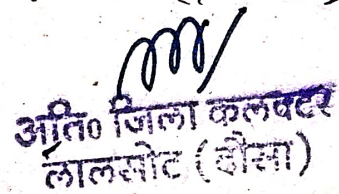 अति० जिला कलक्टर
लालसोट (दौसा)